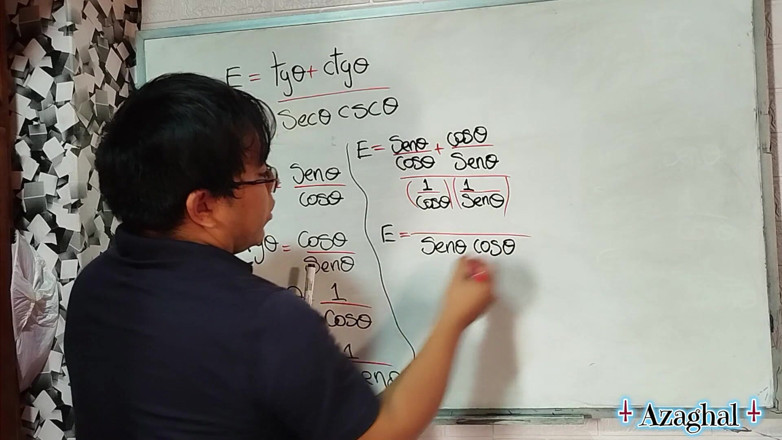 E = tgθ + ctgθ
secθ cscθ
= senθ
cosθ
gθ = cosθ
senθ
1
cosθ
1
enθ
E = senθ + cosθ
cosθ senθ
(1) (1)
cosθ senθ
E =
senθ cosθ
Azaghal